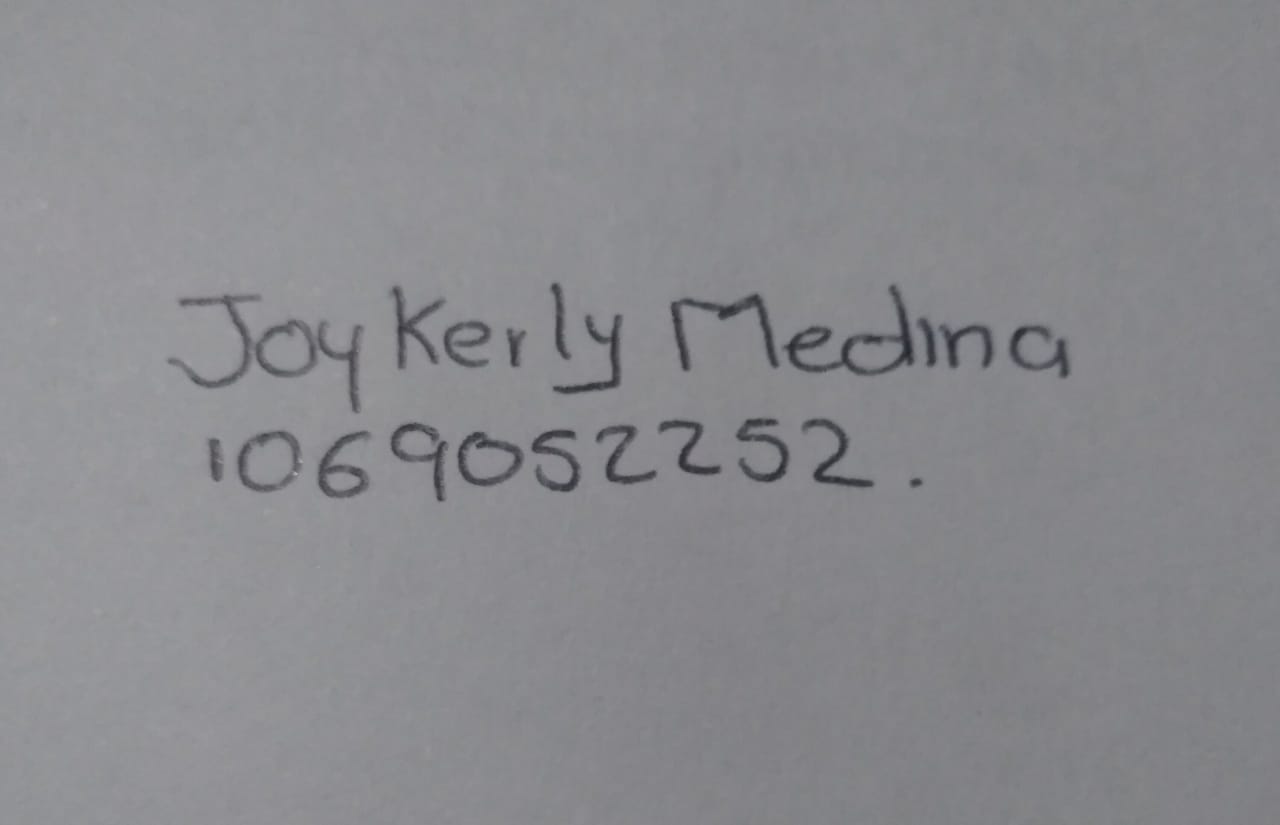 Joy Kerly Medina
1069052252.